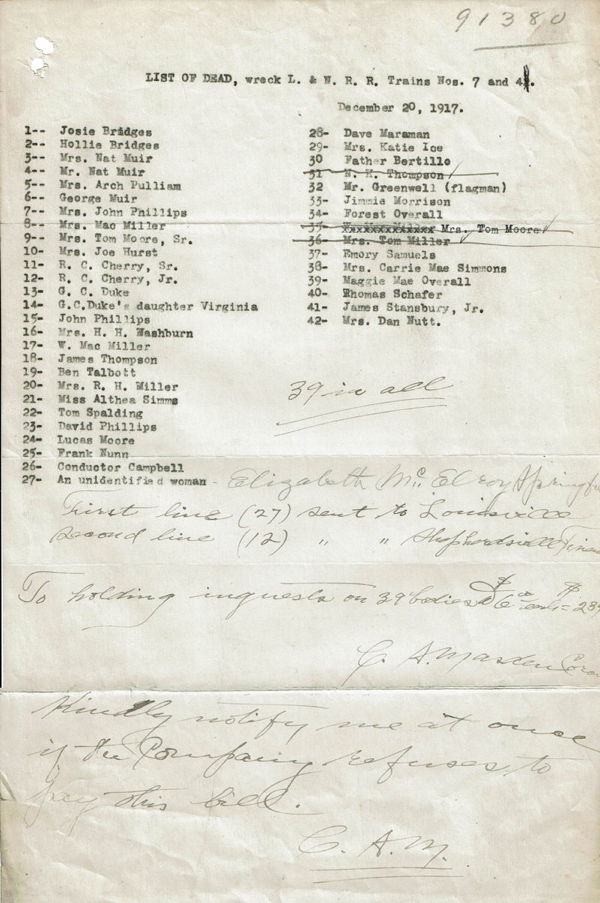 91380
LIST OF DEAD, wreck L. & N. R. R. Trains Nos. 7 and 41.
December 20, 1917.
1-- Josie Bridges
2-- Hollie Bridges
3-- Mrs. Nat Muir
4-- Mr. Nat Muir
5-- Mrs. Arch Pulliam
6-- George Muir
7-- Mrs. John Phillips
8-- Mrs. Mac Miller
9-- Mrs. Tom Moore, Sr.
10- Mrs. Joe Hurst
11- R. C. Cherry, Sr.
12- R. C. Cherry, Jr.
13- G. C. Duke
14- G.C.Duke's daughter Virginia
15- John Phillips
16- Mrs. H. H. Washburn
17- W. Mac Miller
18- James Thompson
19- Ben Talbott
20- Mrs. R. H. Miller
21- Miss Althea Simms
22- Tom Spalding
23- David Phillips
24- Lucas Moore
25- Frank Nunn
26- Conductor Campbell
27- An unidentified woman - Elizabeth McElroy
28- Dave Maraman
29- Mrs. Katie Ice
30 Father Bertillo
31 N. H. Thompson
32 Mr. Greenwell (flagman)
33- Jimmie Morrison
34- Forest Overall
35- xxxxxxxxxxxxx Mrs. Tom Moore
36- Mrs. Tom Miller
37- Emory Samuels
38- Mrs. Carrie Mae Simmons
39- Maggie Mae Overall
40- Thomas Schafer
41- James Stansbury, Jr.
42- Mrs. Dan Nutt.
39 in all
First line (27) sent to Louisville
second line (12) " " Shepherdsville
To holding inquests on 39 bodies
C. A. Masden
Kindly notify me at once
if the Company refuses to
pay this bill.
C. A. M.